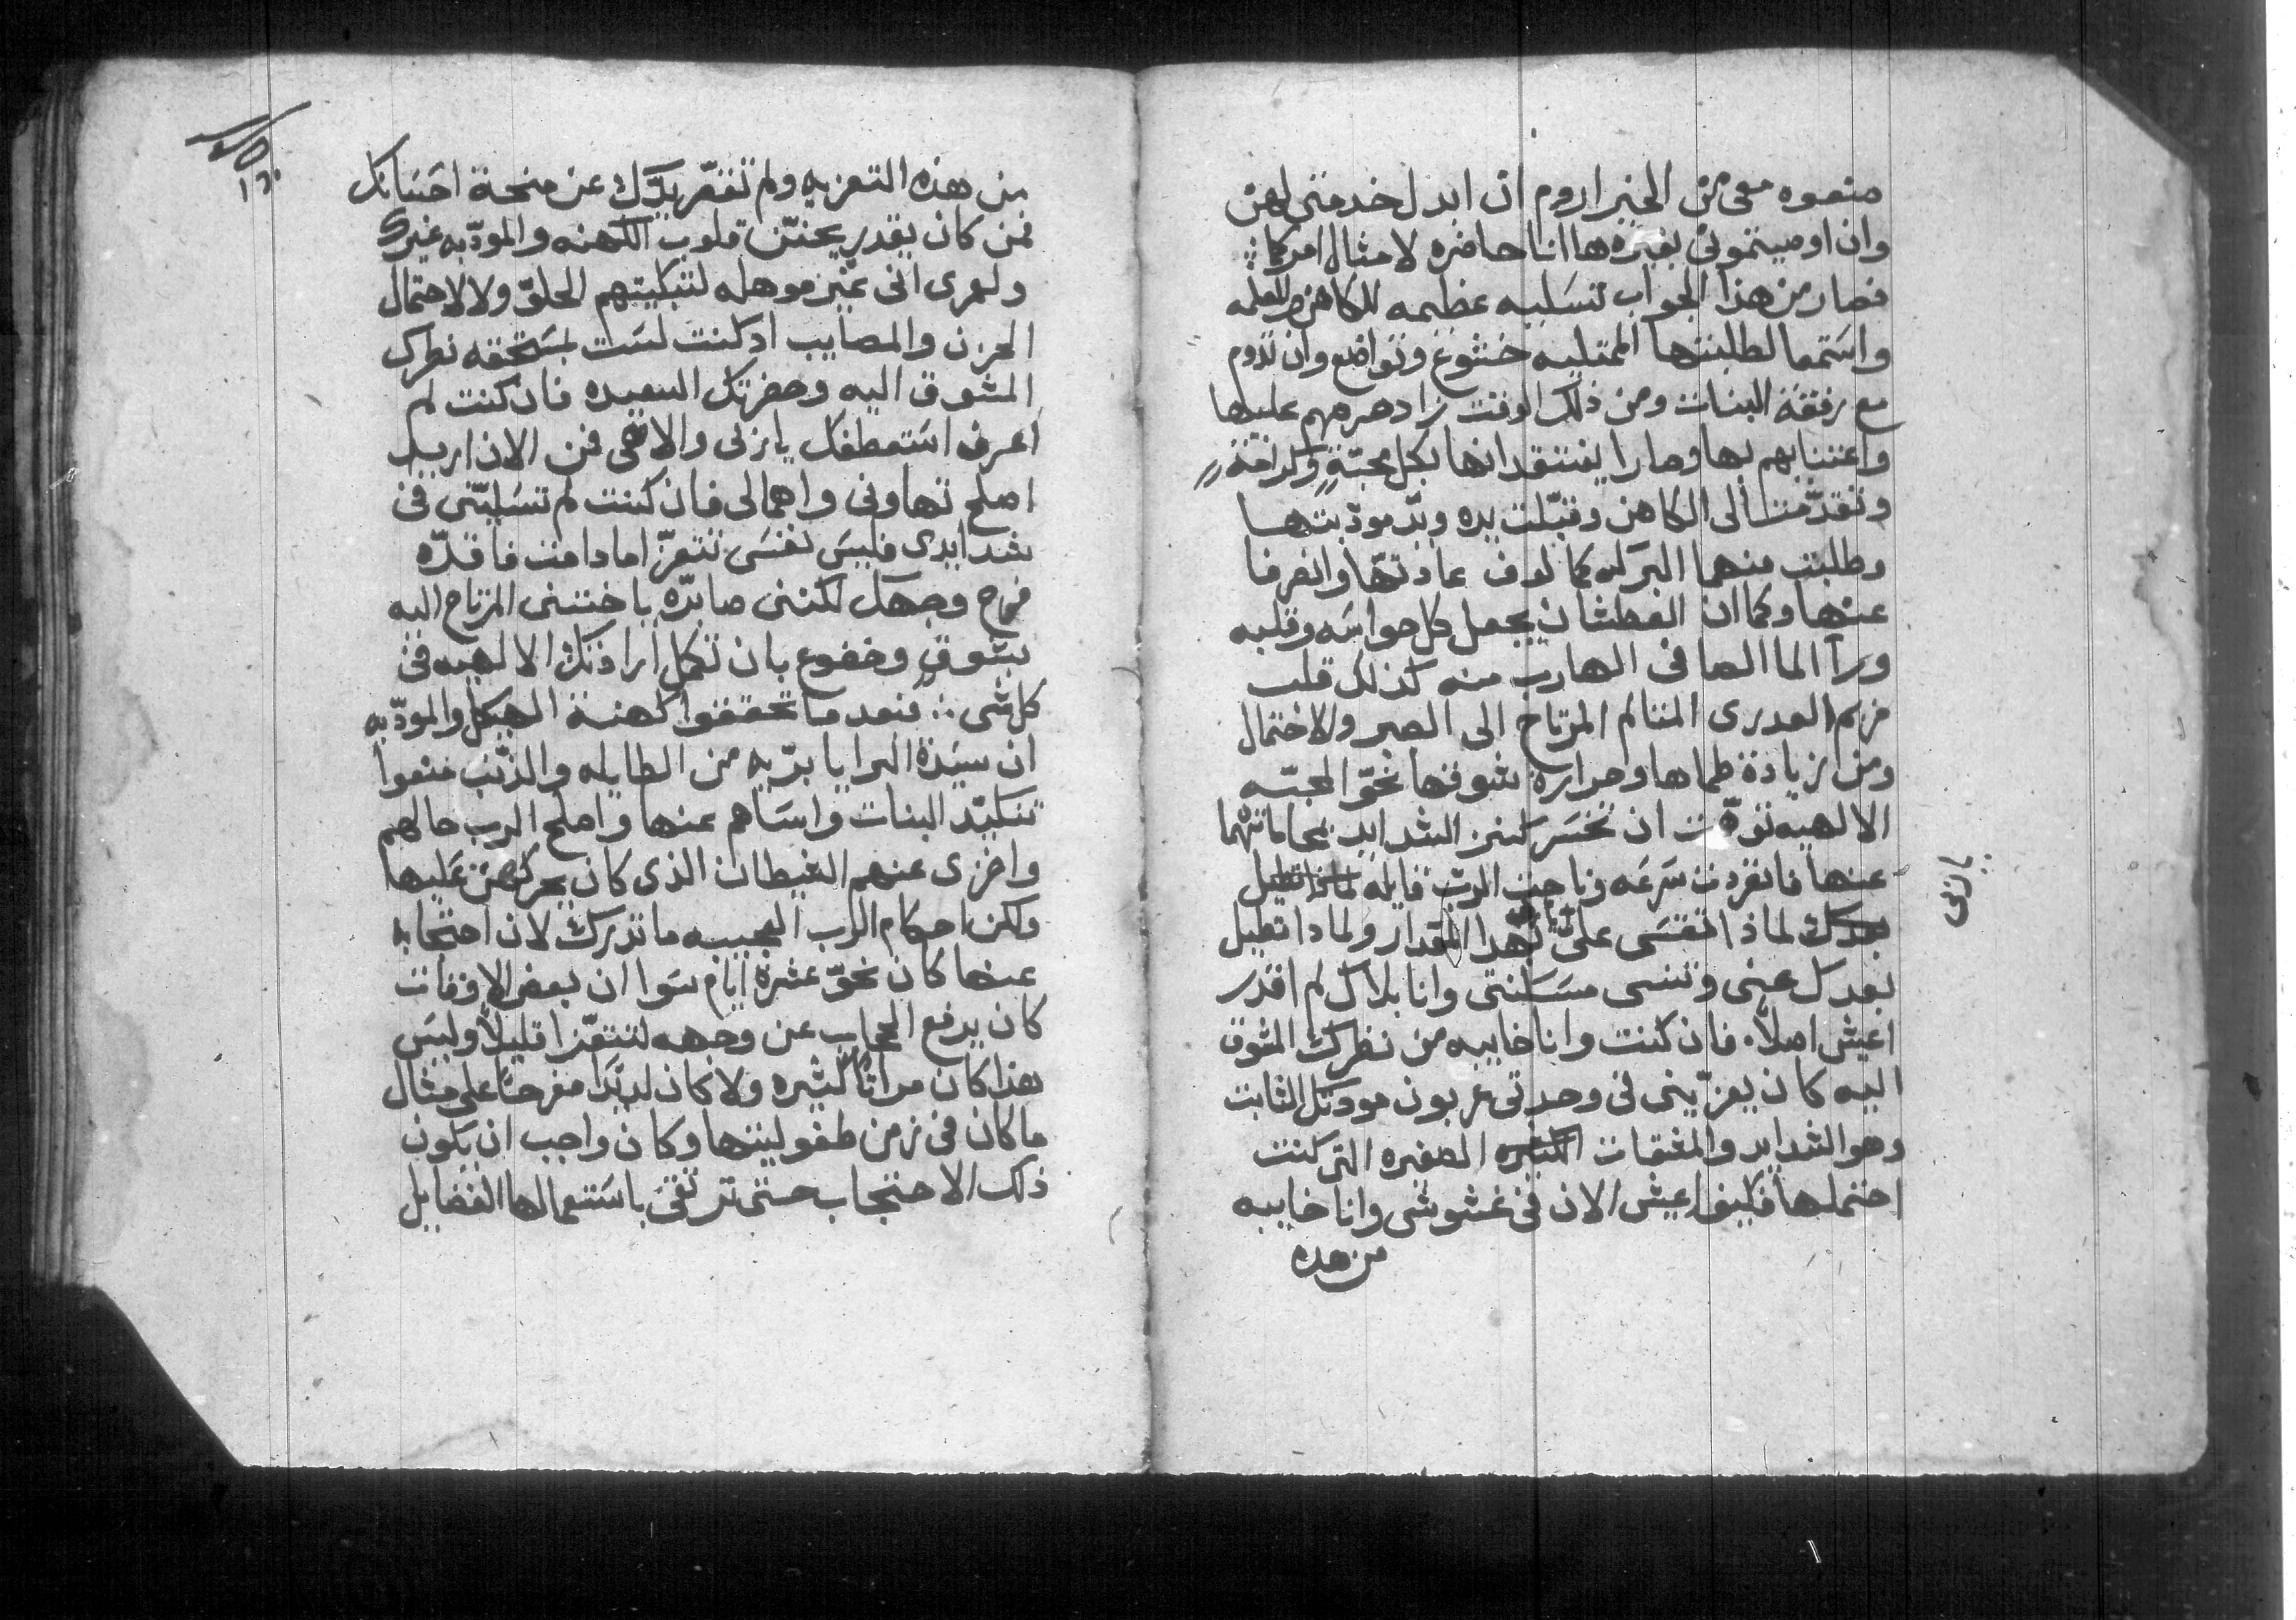 منعوه معى من الخير اروم ان ابدل خدمتى لهن
وان اوصيتمونى بغيره ها انا حاضره لامتثال امركما
فصار من هذا الجواب تسليه عظيمه للكاهن وللمعلمه
واستمعا لطلبتها الممتليه خشوع وتواضع وان تدوم
مع رفقة البنات ومن ذلك الوقت زاد حرصهم عليها
واعتنايهم بها وصارا يفتقدانها بكل محبّةٍ وكرامةٍ
وتقدّمت الى الكاهن وقبّلت يده ويدّ مودّبتها
وطلبت منهما البركه كمالوف عادتها وانصرفا
عنها وكما ان العطشان يجعل كل حواسه وقلبه
ورآ الما الصافى الهارب منه كذلك قلب
مريم العدرى المتالم المرتاح الى الصبر والاحتمال
ومن زيادة ظماها وحرارة شوقها نحوّ المحبّه
الالهيه توّهمت ان تخسر كنز الشدايد بمحاماتهما
عنها فانفردت سرعه وناجت الربّ قايله
لماذا تقسى علىّ بهدا المقدار ولمادا تطيل
بعدك عنى وتنسى مسكنتى وانا بلاك لم اقدر
اعيش اصلاً فان كنت وانا خايبه من نظرك المشوق
اليه كان يعزّينى فى وحدتى عربون مودتك الثابت
وهو الشدايد والمشقات الصغيره التى كنت
احتملها فكيف اعيش الان فى غشوشى وانا خايبه
من هده
يا ربّى
من هذه التعزيه ولم تقصّر يدّك عن منحة احسانك
فمن كان يقدر يحنّن قلوب الكهنه والمودّبه غيرك
ولعمرى انى غير موهله لتبكيتهم الحلوّ ولا لاحتمال
الحزن والمصايب ادكنت لست بمستحقه نظرك
المشوق اليه وحضرتك السعيده فان كنت لم
اعرف استعطفك يا ربى والاهى فمن الان اريد
اصلح تهاونى واهمالى فان كنت لم تسليّنى فى
شدايدى فليس نفسى تتعزّا مادامت فاقدّه
فرح وجهك لكننى صابرّه ياختنى المرتاح اليه
بشوقٍ وخضوع بان تكمل ارادتك الالهيه فى
كل شى ∴ فبعد ما تحققوا كهنة الهيكل والمودّبه
ان سيّدة البرايا بريّه من الطايله والذنب منعوا
تنكيّد البنات واساهم عنها واصلح الرب حالهم
واخزى عنهم الشيطان الذى كان يحركهن عليها
ولكن احكام الرب العجيبه ما تدرك لان احتجابه
عنها كان نحوّ عشرة ايام سوا ان بعض الاوقات
كان يرفع الحجاب عن وجهه لتتعزّا قليلاً وليس
هذا كان مراتًا كثيره ولا كان لديّدا مفرحًا على مثال
ما كان فى زمن طفوليتها وكان واجب ان يكون
ذلك الاحتجاب حتى ترتقى باستعمالها الفضايل